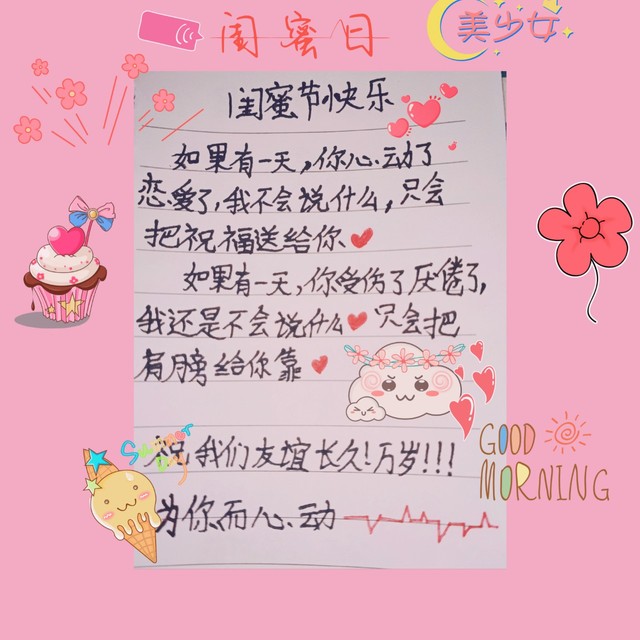 闺蜜日
美少女
闺蜜节快乐
如果有一天,你心动了
恋爱了,我不会说什么,只会
把祝福送给你
如果有一天,你受伤了厌倦了,
我还是不会说什么只会把
肩膀给你靠
Summer
Day
祝我们友谊长久!万岁!!!
GOOD
MORNING
为你而心动